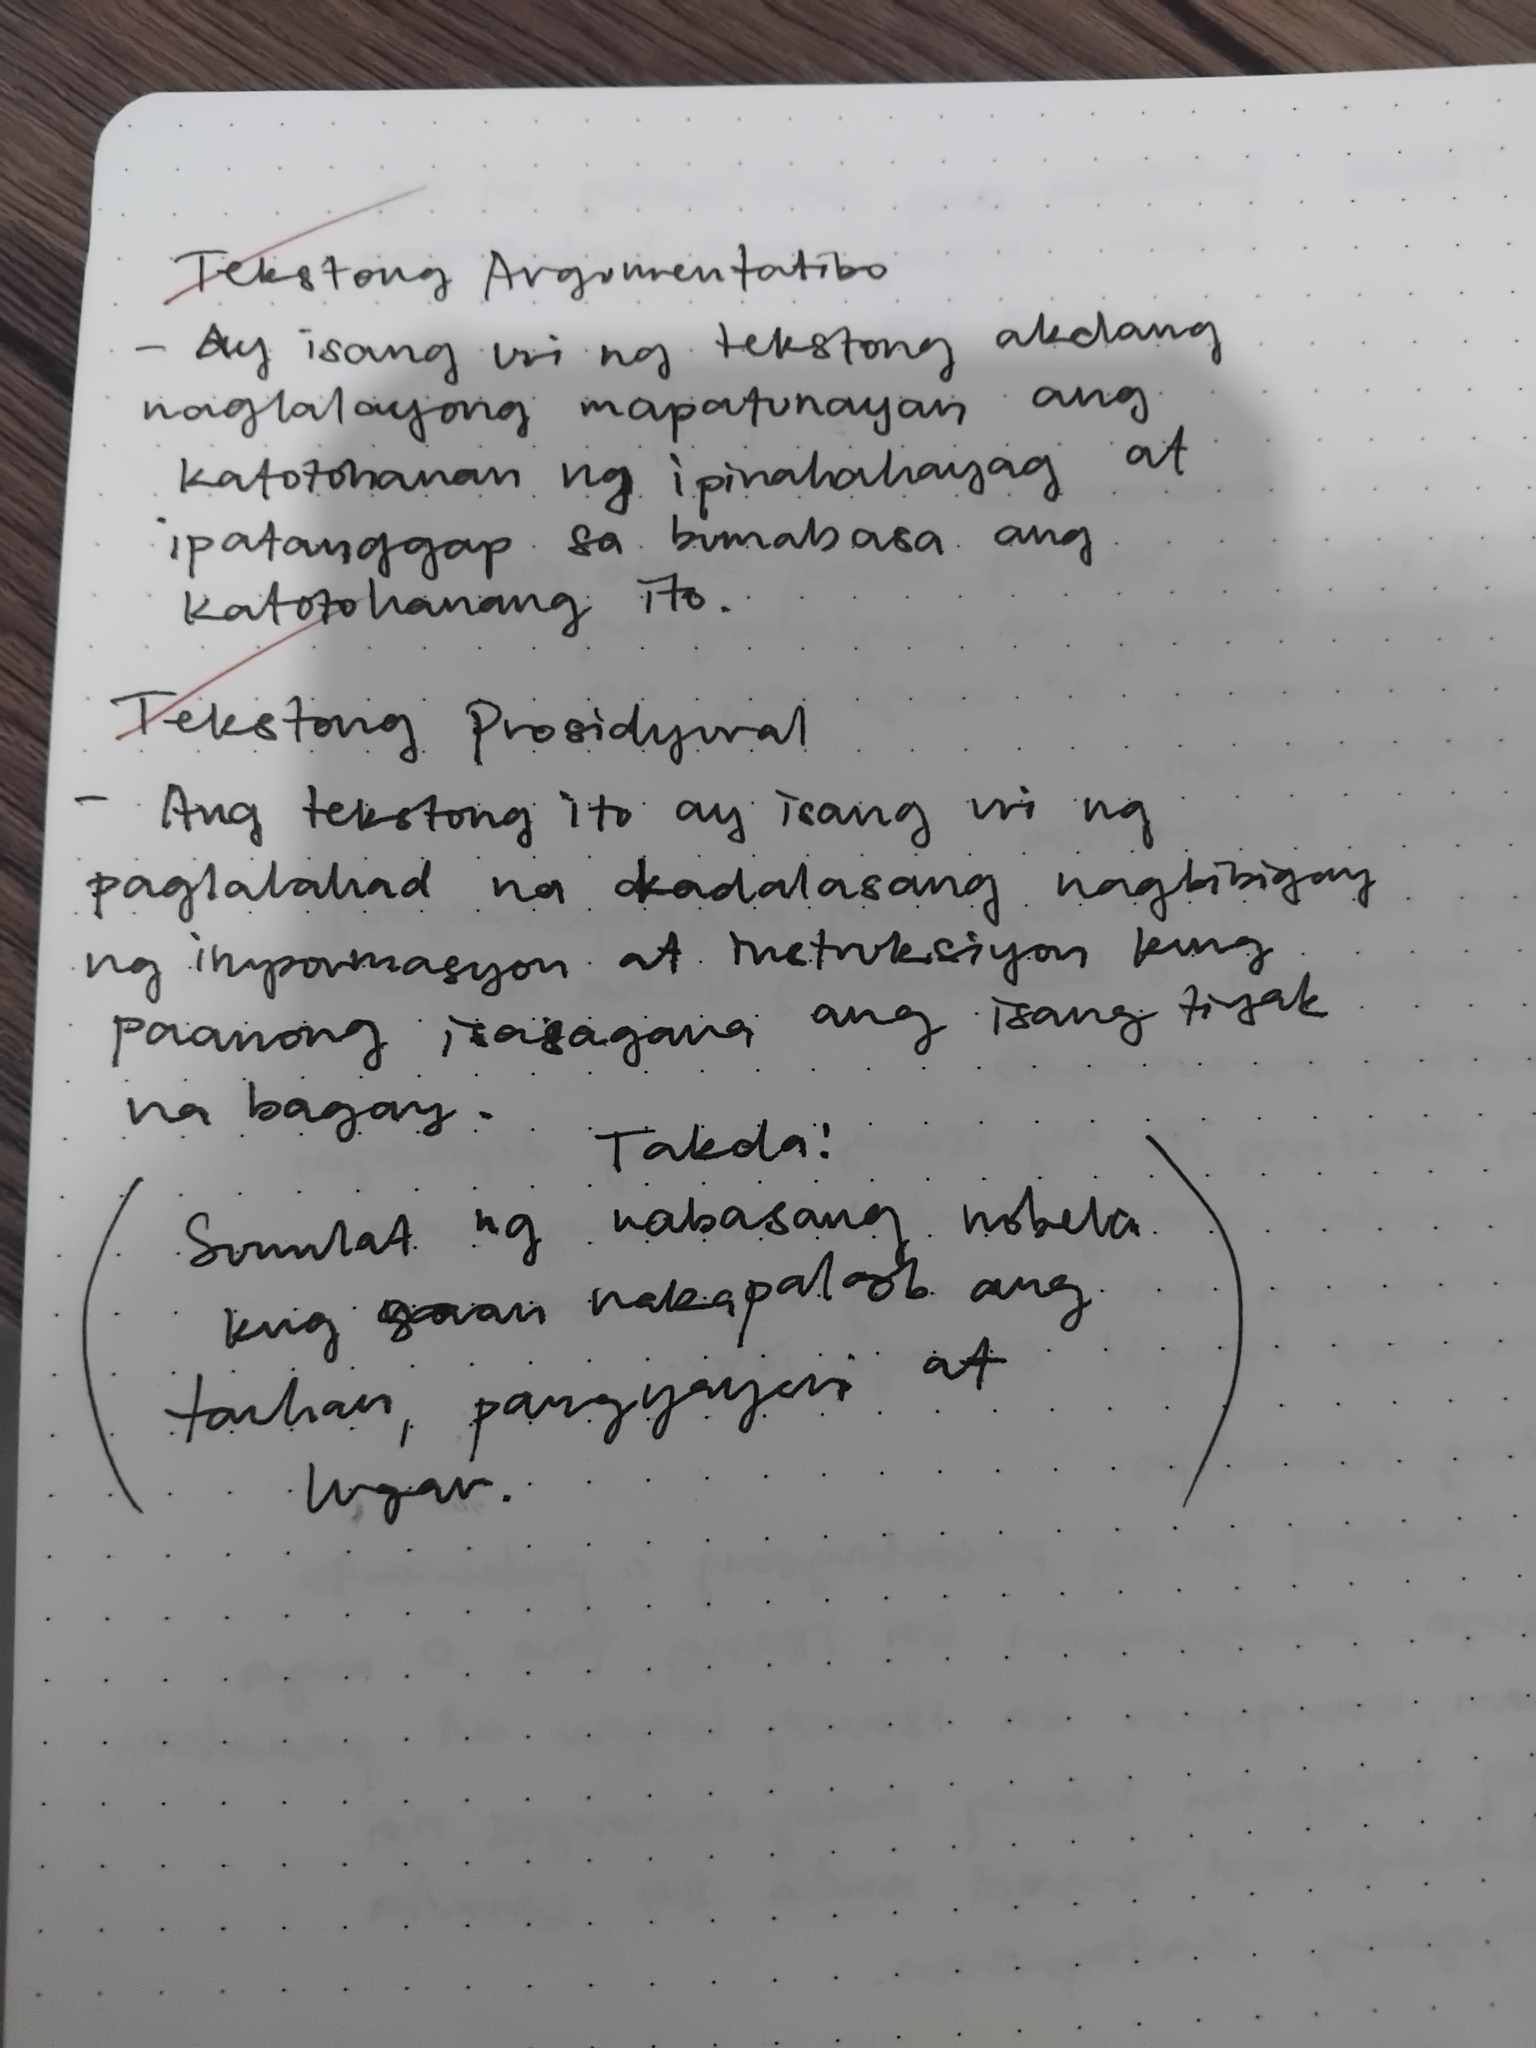 Tekstong Argumentatibo
- Ay isang uri ng tekstong akdang
naglalayong mapatunayan ang
katotohanan ng ipinahahayag at
ipatanggap sa bumabasa ang
katotohanang ito.
Tekstong Prosidyural
- Ang tekstong ito ay isang uri ng
paglalahad na kadalasang nagbibigay
ng impormasyon at instruksiyon kung
paanong isasagawa ang isang tiyak
na bagay.
Takda!
Sumulat ng nabasang nobela
kung saan nakapaloob ang
tauhan, pangyayari at
lugar.